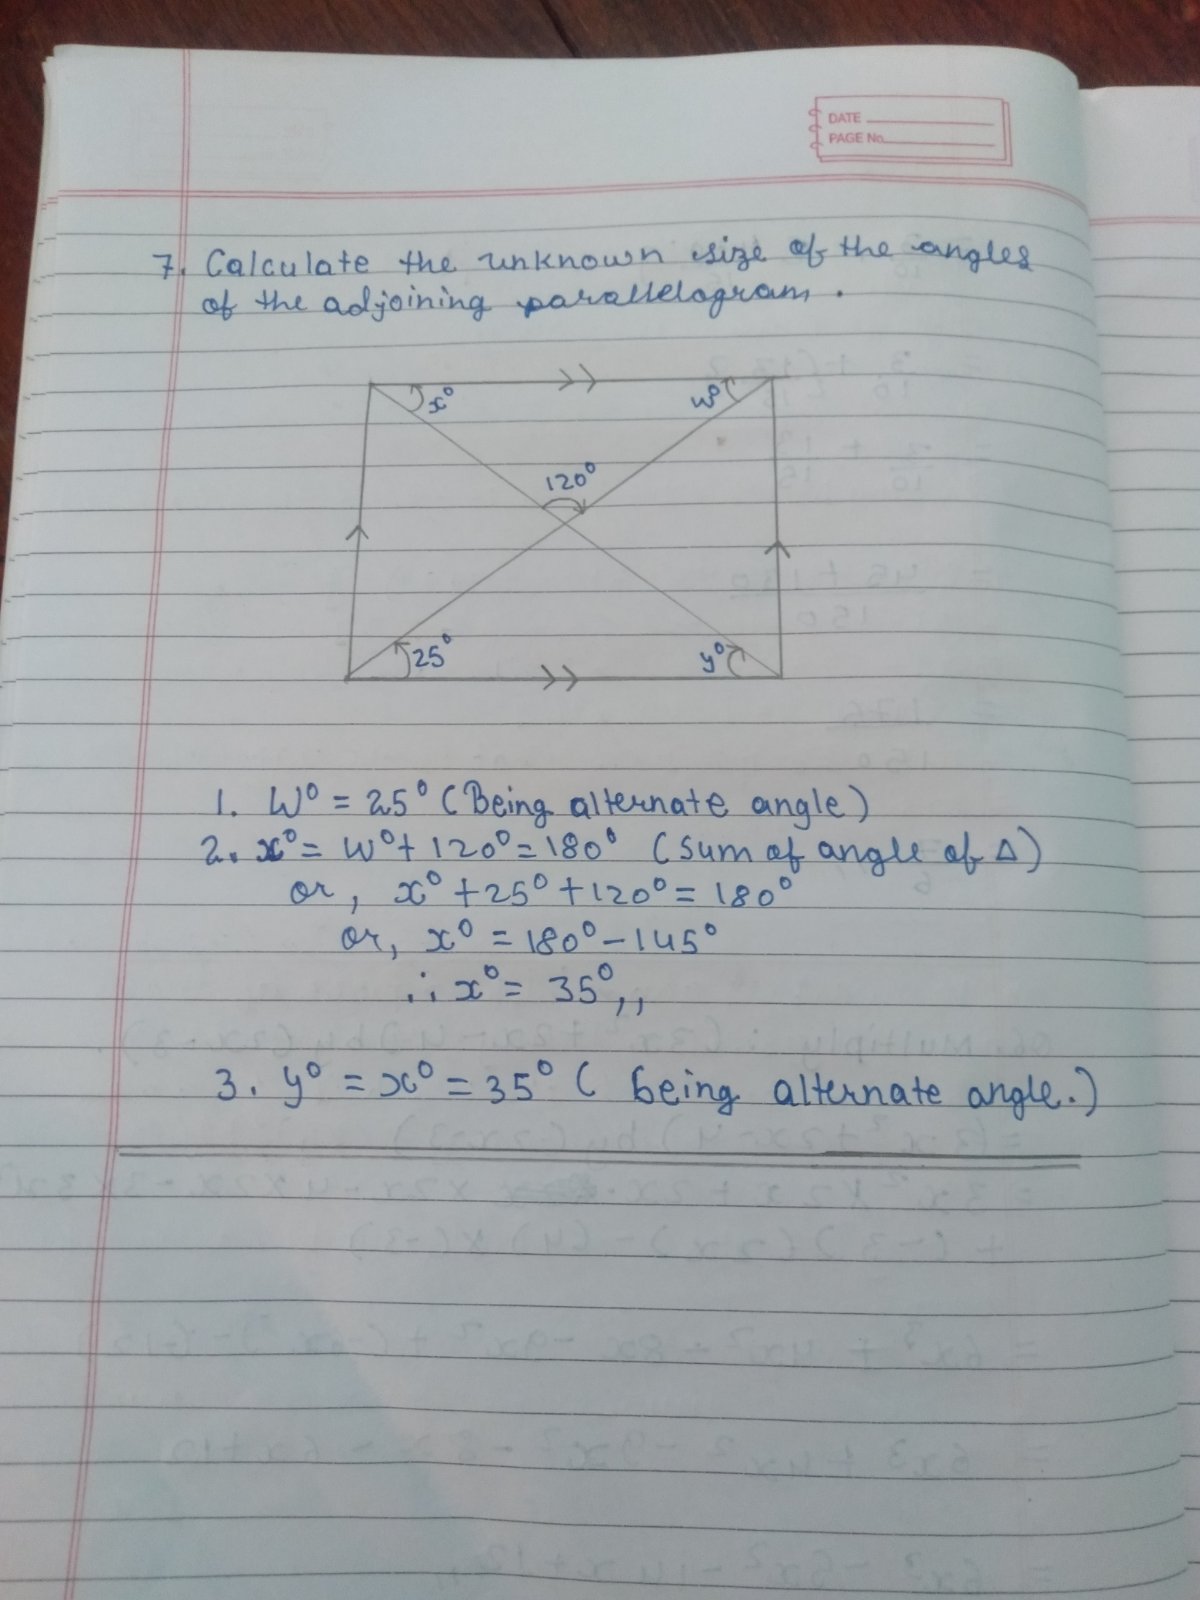 DATE
PAGE No.
7. Calculate the unknown size of the angles
of the adjoining parallelogram.
x° w°
120°
25° y°
1. W° = 25° (Being alternate angle)
2. x° = W° + 120° = 180° (Sum of angle of Δ)
or, x° + 25° + 120° = 180°
or, x° = 180° - 145°
∴ x° = 35°,,
3. y° = x° = 35° ( being alternate angle.)